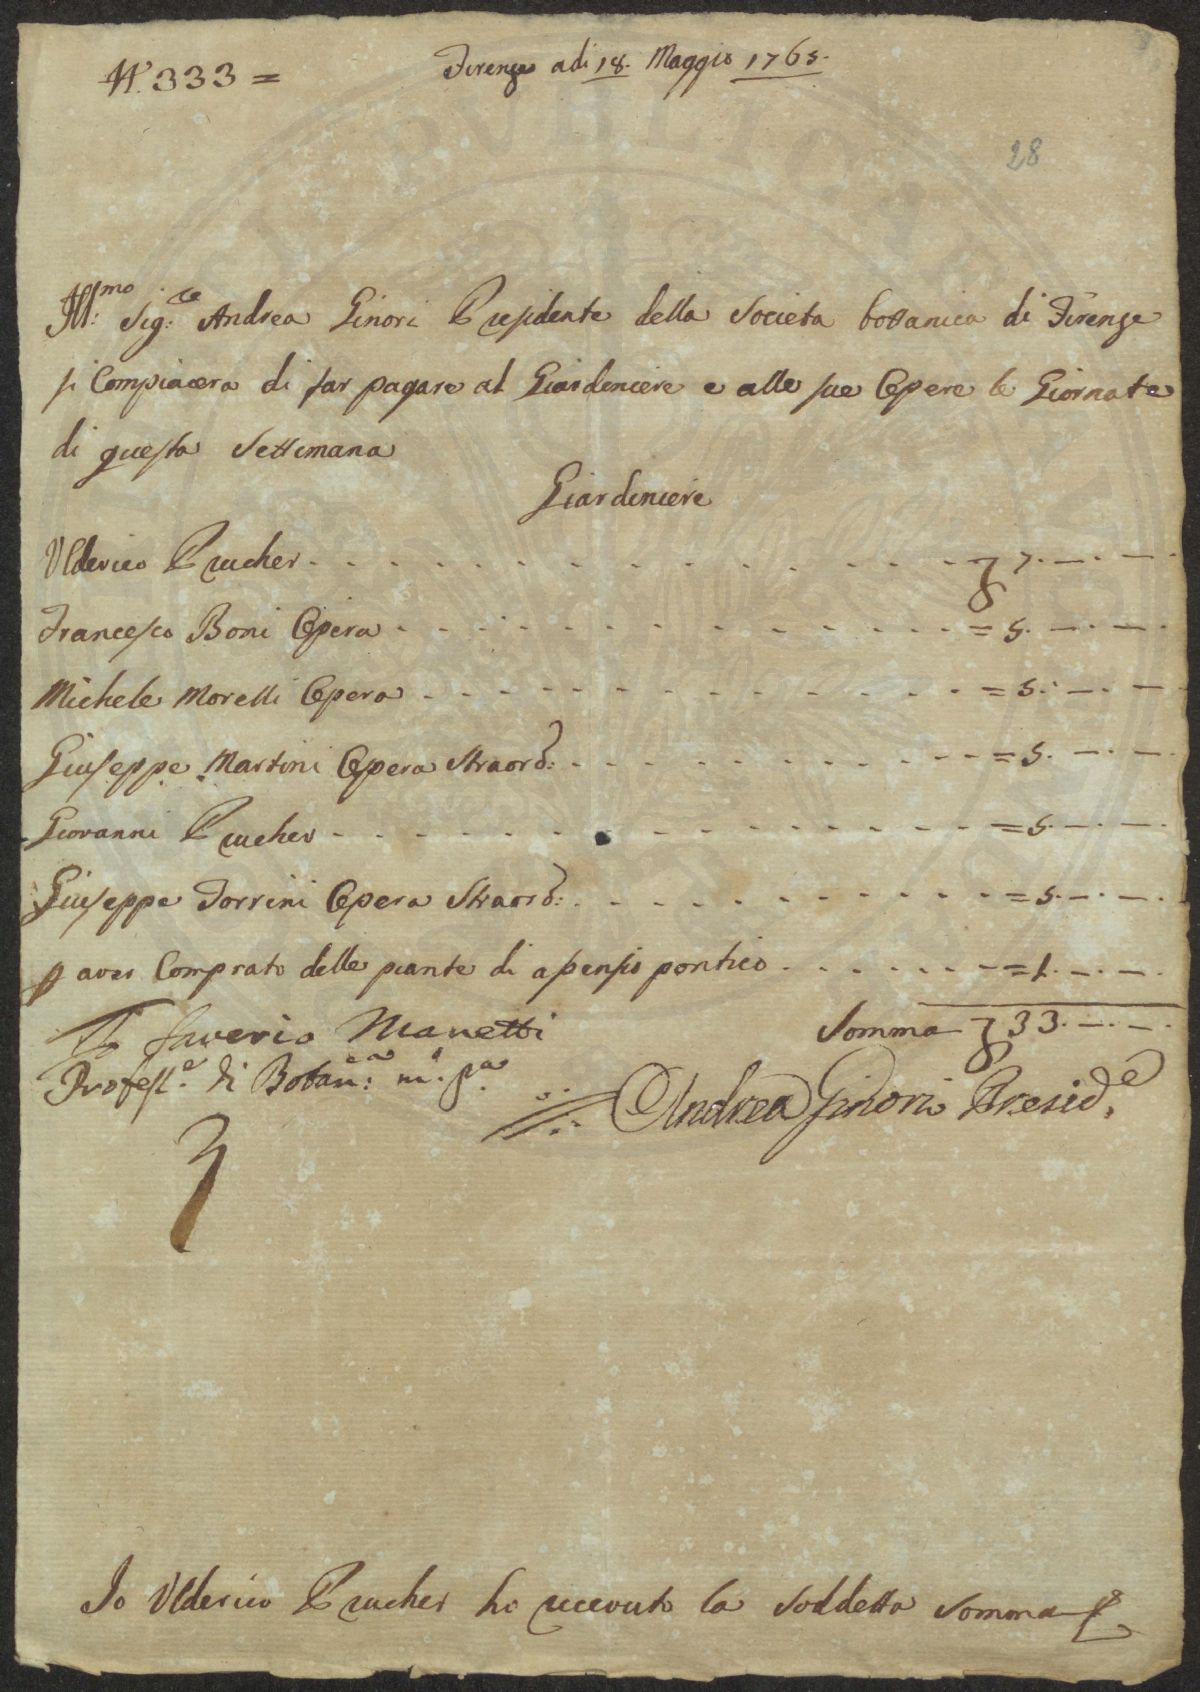 N.° 333 =
Firenze adi 18. Maggio 1765.
28
Ill:mo Sig:re Andrea Ginori Presidente della Societa bottanica di Firenze
si Compiacera di far pagare al Giardiniere e alle sue Opere le Giornate
di questa Settimana
Giardiniere
Ulderico Prucher - - - - - - - - - - - - - - - - - 7. — . —
Francesco Boni Opera - - - - - - - - - - - - - - = 5. — . — .
Michele Morelli Opera - - - - - - - - - - - - - - = 5. — . —
Giuseppe Martini Opera Straord: - - - - - - - - - - = 5. — . — .
Giovanni Prucher - - - - - - - - - - - - - - - - = 5. — . — .
Giuseppe Torrini Opera Straord: - - - - - - - - - - = 5. — . — .
p aver Comprato delle piante di apensio pontico - - - - - - = 1. — . — .
Somma 33. — . — .
Io Saverio Manetti
Profess.e di Botan:ca m.o p.a
Andrea Ginori Presid.e
Io Ulderico Prucher ho ricevuto la Soddetta Somma